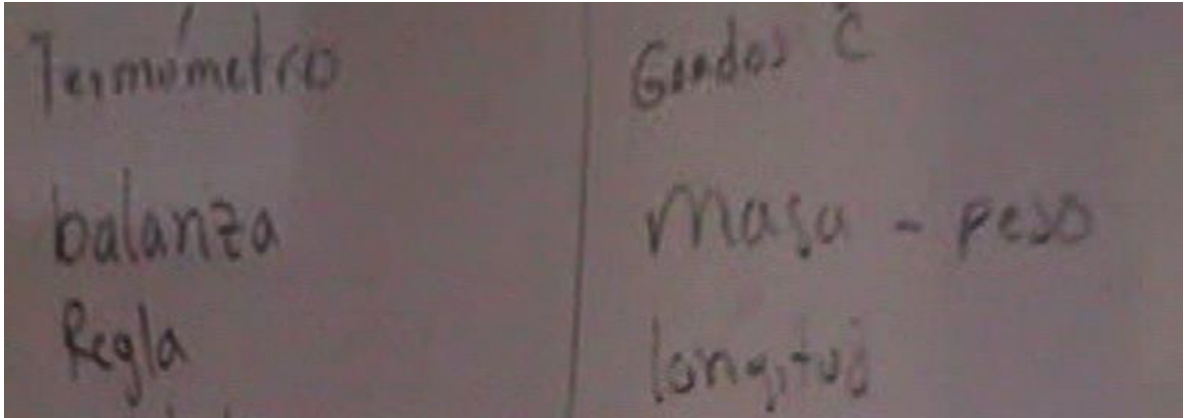 Termómetro
Grados C
balanza
Masa - peso
Regla
longitud